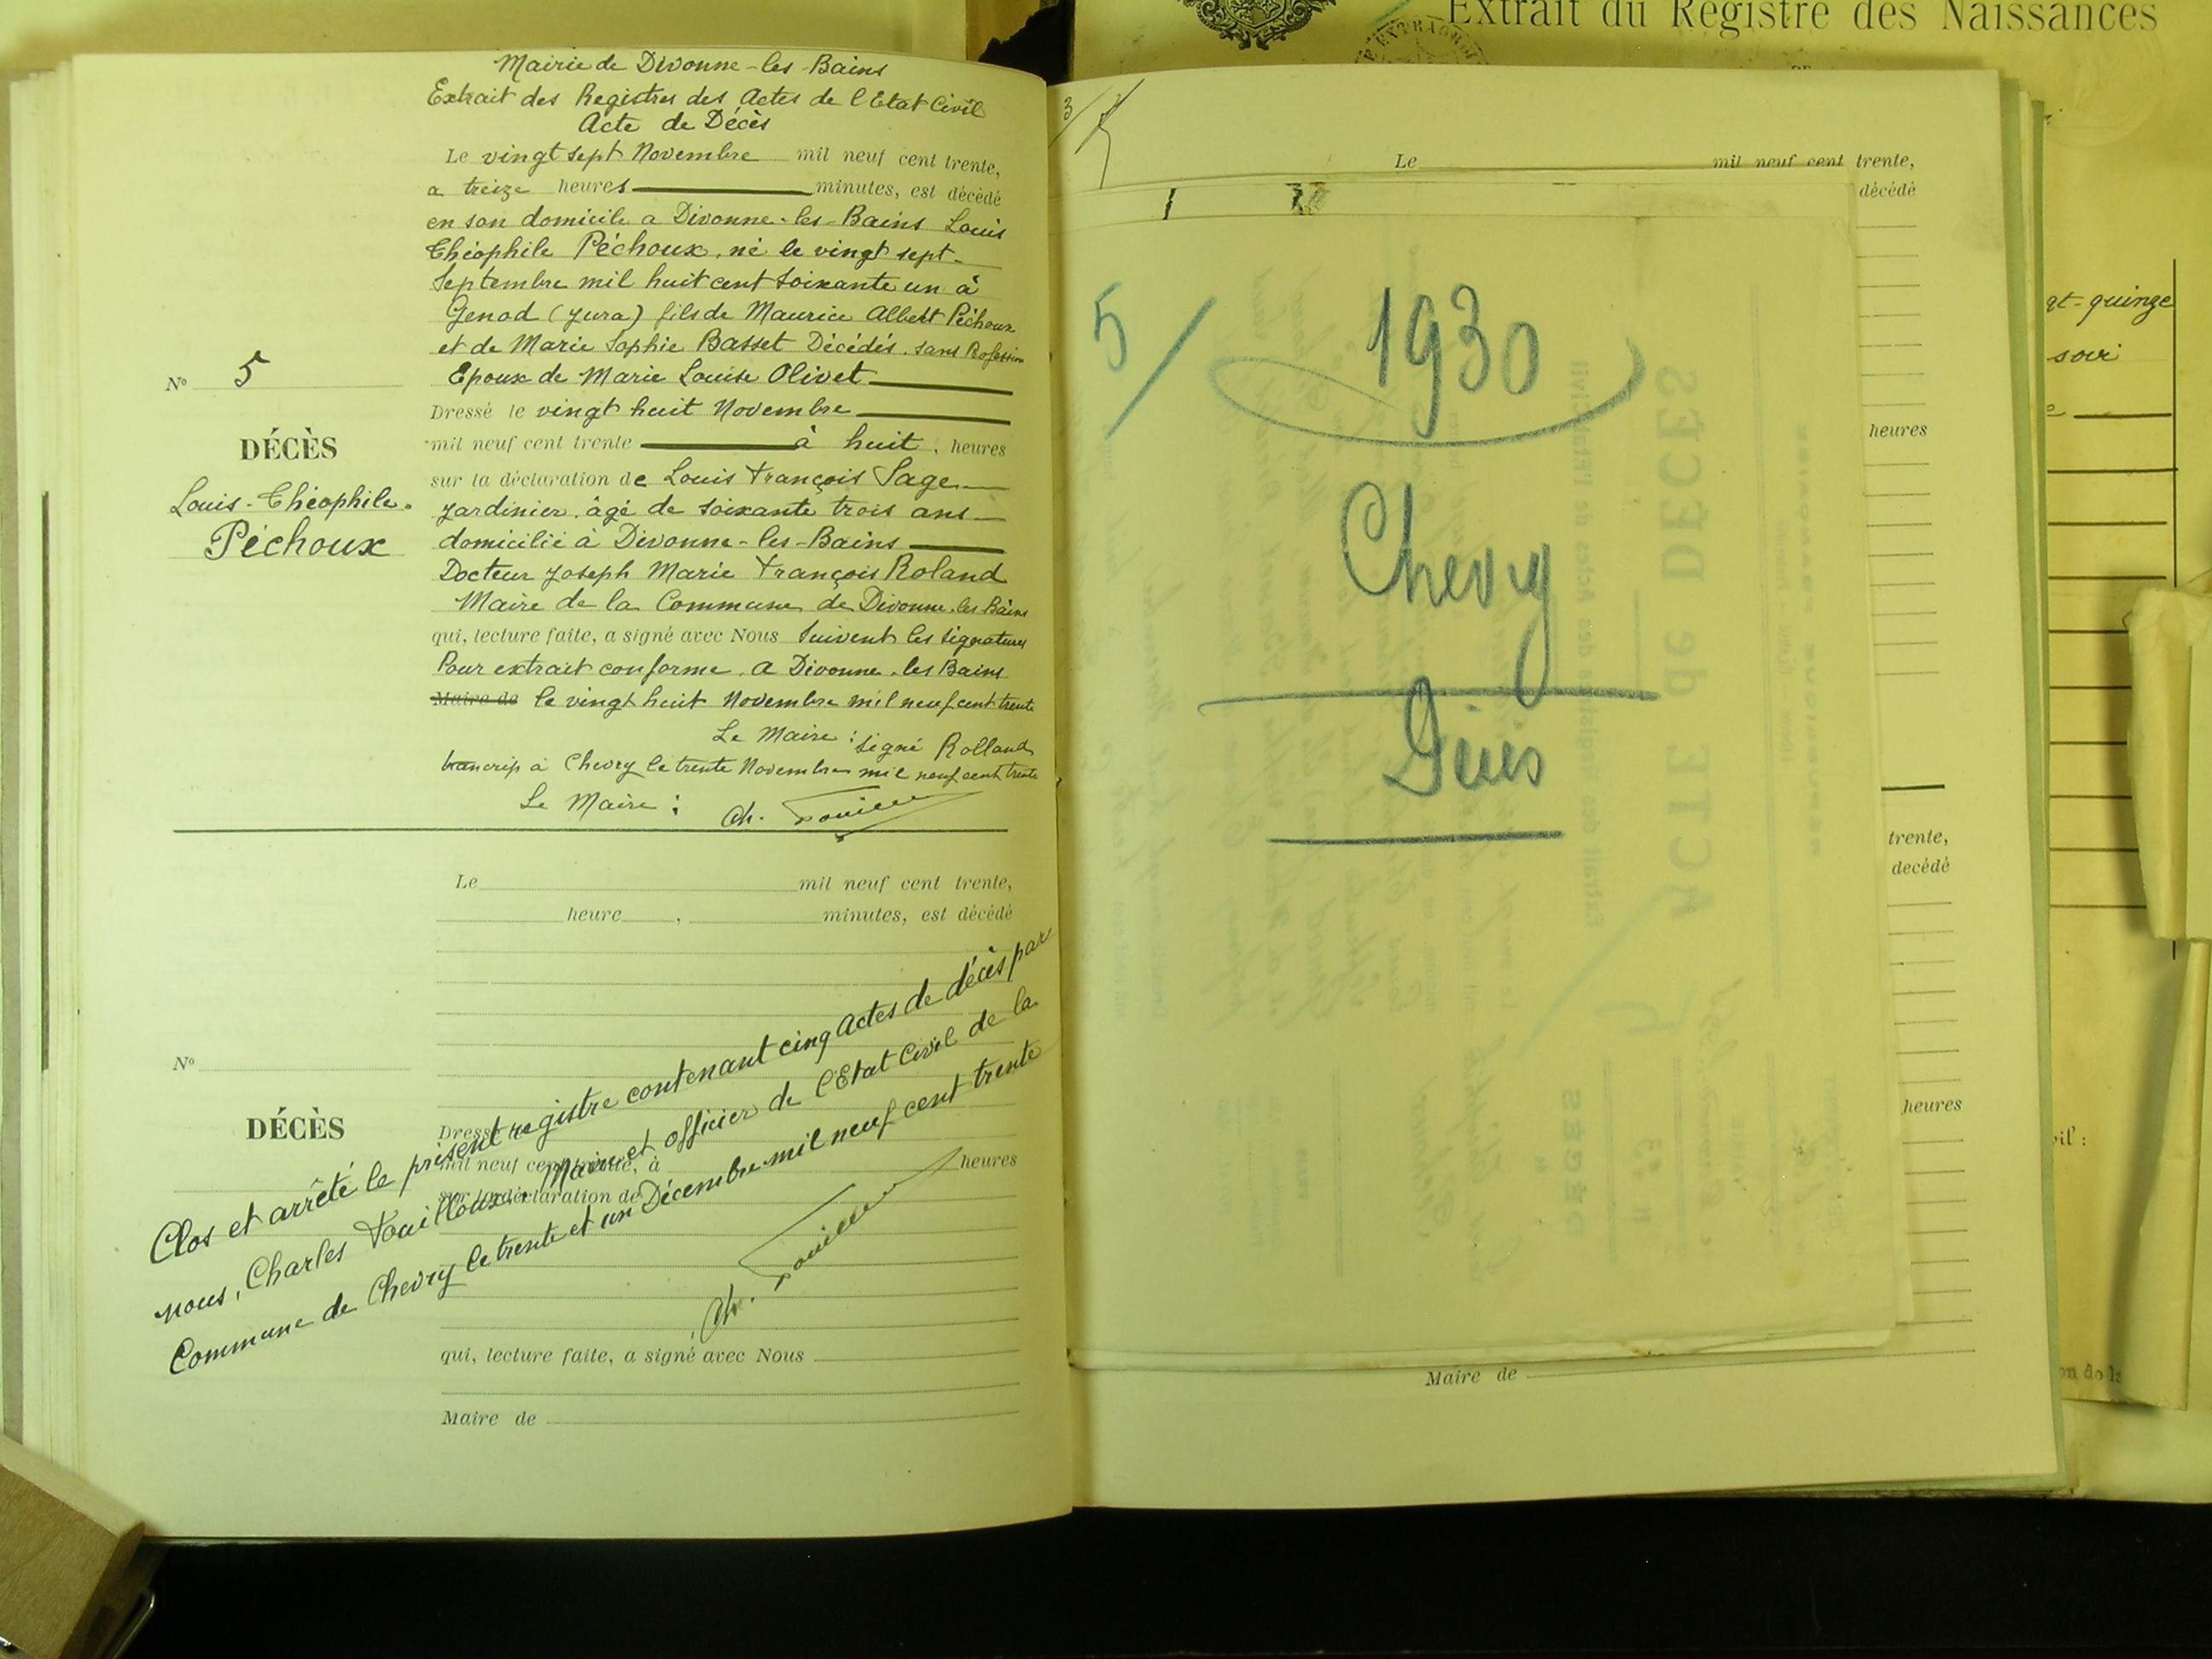 Mairie de Divonne-les-Bains
Extrait des Registres des Actes de l'Etat Civil
Acte de Décès
Le vingt sept Novembre mil neuf cent trente,
a treize heures minutes, est décédé
en son domicile a Divonne-les-Bains Louis
Théophile Péchoux, né le vingt sept
Septembre mil huit cent soixante un à
Genod (Jura) fils de Maurice Albert Péchoux
et de Marie Sophie Basset Décédés. sans Profession
Epoux de Marie Louise Olivet
Dressé le vingt huit Novembre
mil neuf cent trente à huit, heures
sur la déclaration de Louis François Sage
jardinier, âgé de soixante trois ans
domicilié à Divonne-les-Bains
Docteur Joseph Marie François Roland
Maire de la Commune de Divonne-les Bains
qui, lecture faite, a signé avec Nous Suivent les signatures
Pour extrait conforme. A Divonne-les Bains
Maire de le vingt huit Novembre mil neuf cent trente
Le Maire : signé Rolland
transcrip à Chevry le trente Novembre mil neuf cent trente
Le Maire :
Nº 5
DÉCÈS
Louis-Théophile
Péchoux
Le mil neuf cent trente,
heure , minutes, est décédé
Nº
DÉCÈS
Dressé le
mil neuf cent trente, à heures
sur la déclaration de
Clos et arrêté le présent registre contenant cinq Actes de décès par
nous, Charles Touilloux, Maire et officier de l'Etat Civil de la
Commune de Chevry le trente et un Décembre mil neuf cent trente
qui, lecture faite, a signé avec Nous
Maire de
3
Le mil neuf cent trente,
décédé
5/
1930
Chevry
Décès
heures
trente,
decédé
heures
Maire de
Extrait du Registre des Naissances
DE
gt-quinze
soir